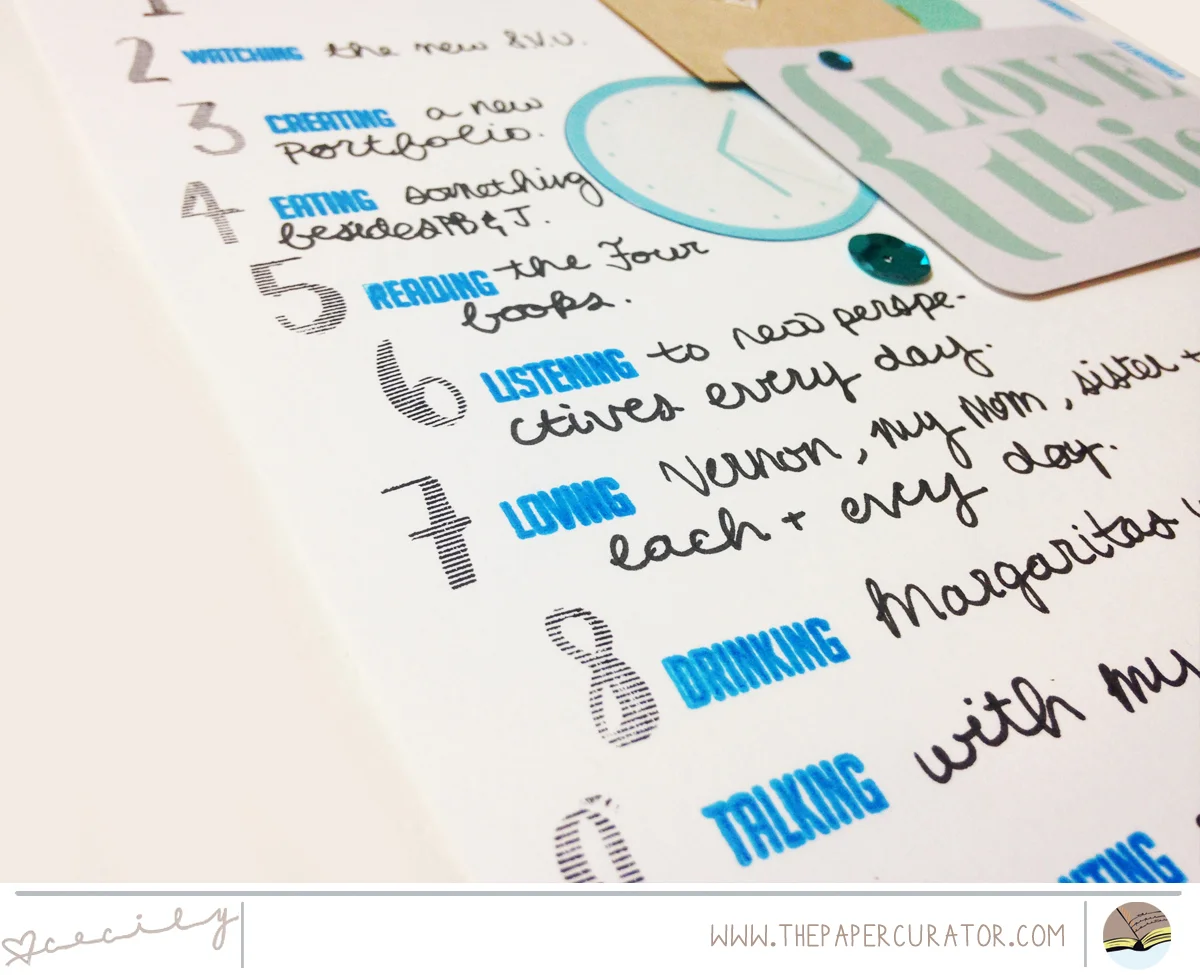 1
2 WATCHING the new S.V.U.
3 CREATING a new
Portfolio.
4 EATING something
besides PB & J.
5 READING the Four
books.
6 LISTENING to new perspe-
ctives every day.
7 LOVING Vernon, my Mom, sister +
each + every day.
8 DRINKING Margaritas
TALKING with my
{LOVE
this
cecily
WWW.THEPAPERCURATOR.COM